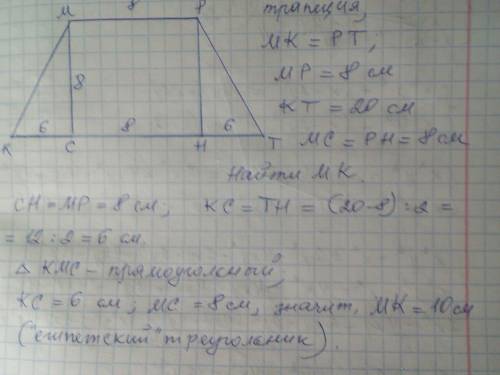 трапеция,
8
M P
MK = PT;
MP = 8 см
8
KT = 20 см
6 8 6
K C H T
MC = PH = 8 см
Найти MK.
CH = MP = 8 см; KC = TH = (20-8) : 2 =
= 12 : 2 = 6 см.
△ KMC - прямоугольный,
KC = 6 см; MC = 8 см, значит, MK = 10 см
("египетский" треугольник).